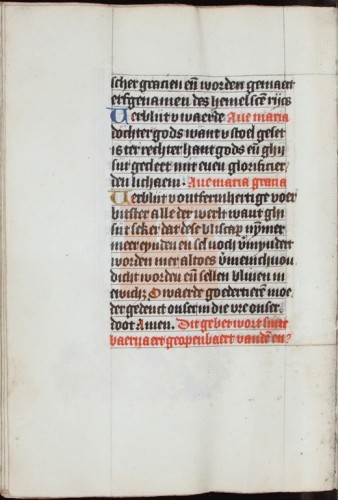 scher gracien en̄ worden gemaect
erfgenamen des hemelscē rijcs
Verblijt v waerde Aue maria
dochter gods want v stoel geset
is ter rechter hant gods en̄ ghi
sijt gecleet mit euen glorificier
den lichaem. Aue maria gracia
Verblijt v ontfermhertige voer
bidster alle der werlt want ghi
sijt seker dat dese bliscap nȳmer
meer eynden en sel noch v̄mindert
worden mer altoes v̄menichuou
dicht worden en̄ sellen bliuen in
ewich; O waerde goedertierē moe
der gedenct onser in die vre onser
doot Amen. Dit gebet wort sinte
baernaert geopenbaert vandē en